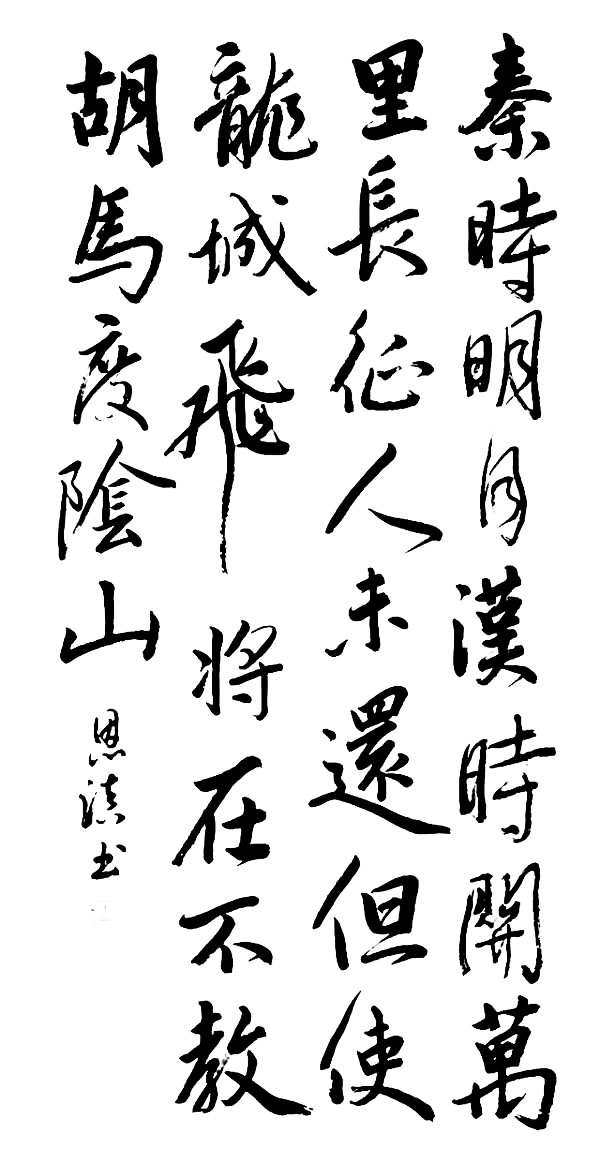 秦時明月漢時關萬
里長征人未還但使
龍城飛將在不教
胡馬度陰山
恩滇书